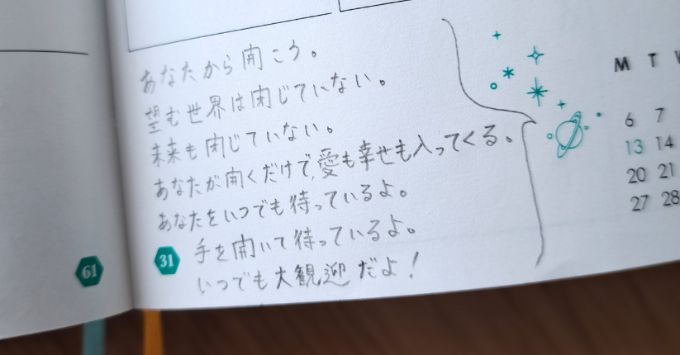 あなたから開こう。
望む世界は閉じていない。
未来も閉じていない。
あなたが開くだけで、愛も幸せも入ってくる。
あなたをいつでも待っているよ。
手を開いて待っているよ。
いつでも大観迎だよ！
61
31
M T
6 7
13 14
20 21
27 28